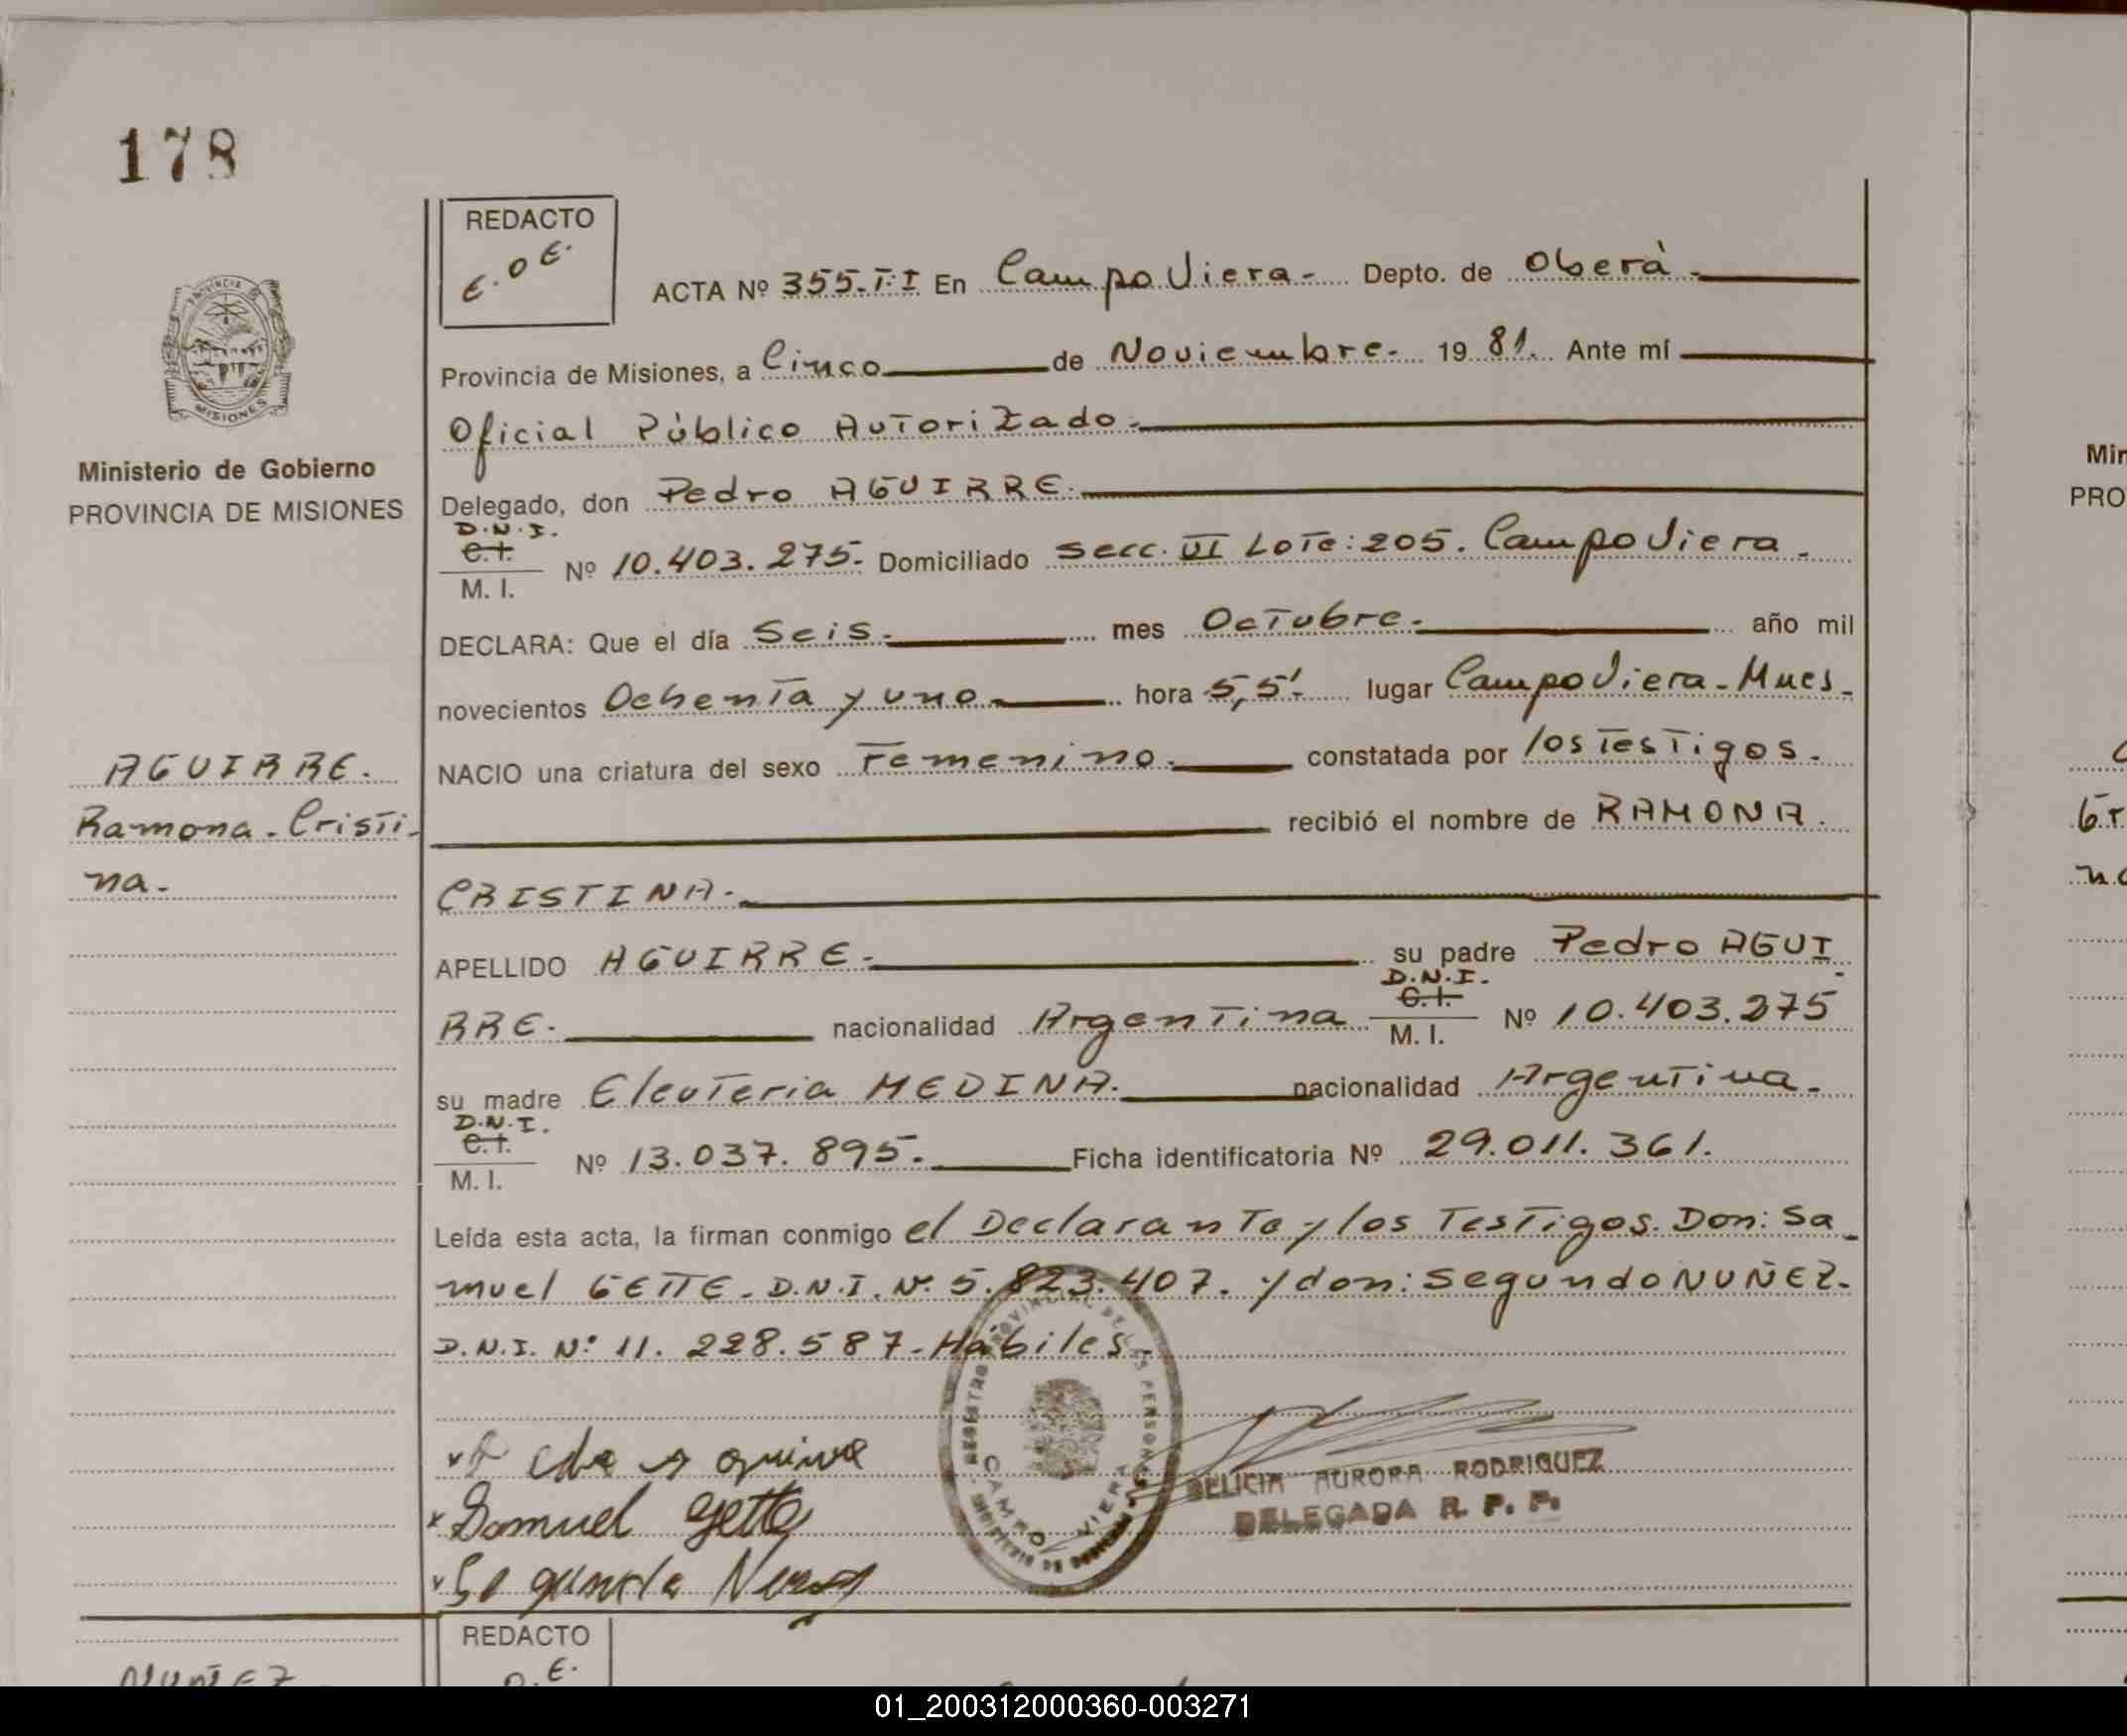 178
REDACTO
E.O.E.
ACTA Nº 355.T:I En Campo Viera.- Depto. de Oberà.-
Provincia de Misiones, a Cinco de Noviembre.- 1981. Ante mí
Oficial Público Autorizado.-
Delegado, don Pedro AGUIRRE.
D.N.I.
C.I.
M. I. Nº 10.403.275.- Domiciliado Secc. VI Lote: 205. Campo Viera.-
DECLARA: Que el día Seis.- mes Octubre.- año mil
novecientos Ochenta y uno.- hora 5,5'.- lugar Campo Viera.- Mnes.-
NACIO una criatura del sexo Femenino.- constatada por los Testigos.-
recibió el nombre de RAMONA.
CRISTINA.-
APELLIDO AGUIRRE.- su padre Pedro AGUI
D.N.I.
C.I.
RRE.- nacionalidad Argentina M. I. Nº 10.403.275
su madre Eleuteria MEDINA. nacionalidad Argentina.-
D.N.I.
C.I.
M. I. Nº 13.037.895.- Ficha identificatoria Nº 29.011.361.
Leída esta acta, la firman conmigo el Declarante y los Testigos. Don: Sa_
muel GETTE. D.N.I. Nº 5.823.407. y don: Segundo NUÑEZ.-
D.N.I. Nº 11.228.587.- Hábiles.-
Samuel Gette
REGISTRO PROVINCIAL DE LAS PERSONAS
CAMPO VIERA
MINISTERIO DE GOBIERNO
DELICIA AURORA RODRIGUEZ
DELEGADA R. P. P.
PROVINCIA DE
MISIONES
Ministerio de Gobierno
PROVINCIA DE MISIONES
AGUIRRE.
Ramona.Cristi-
na.-
REDACTO
NUÑEZ
Min
PRO
01_200312000360-003271